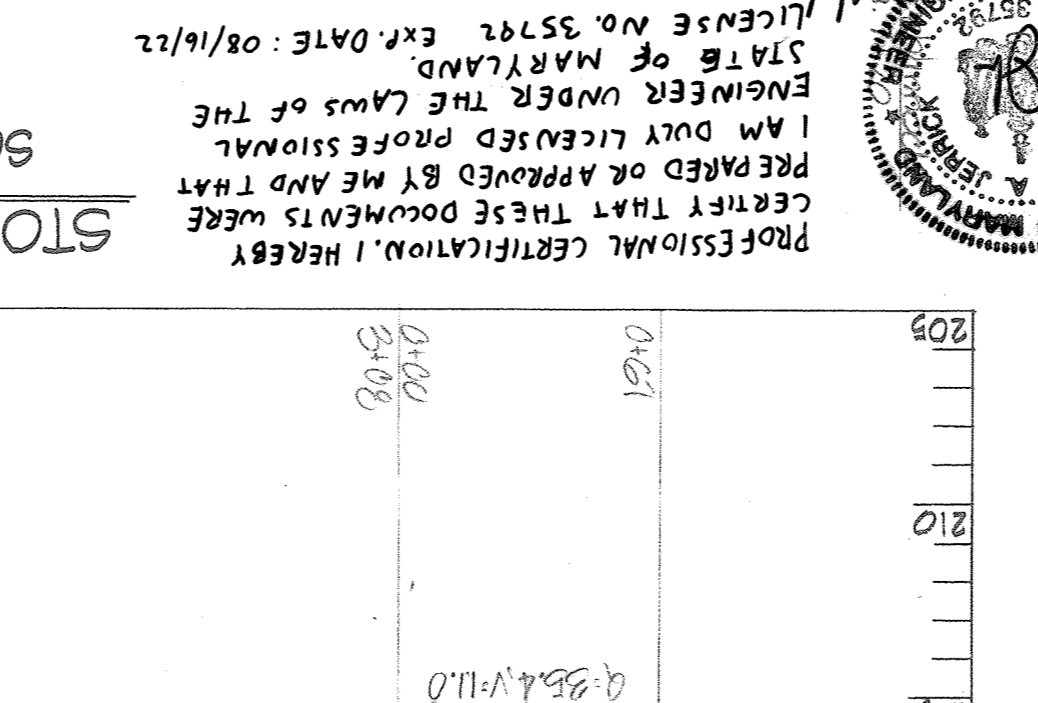 Q=35.4, V=11.0
210
205
0+00
3+08
PROFESSIONAL CERTIFICATION. I HEREBY
CERTIFY THAT THESE DOCUMENTS WERE
PREPARED OR APPROVED BY ME AND THAT
I AM DULY LICENSED PROFESSIONAL
ENGINEER UNDER THE LAWS OF THE
STATE OF MARYLAND.
LICENSE NO. 35792 EXP. DATE: 08/16/22
STO
MARYLAND
A. JERRICK
35792